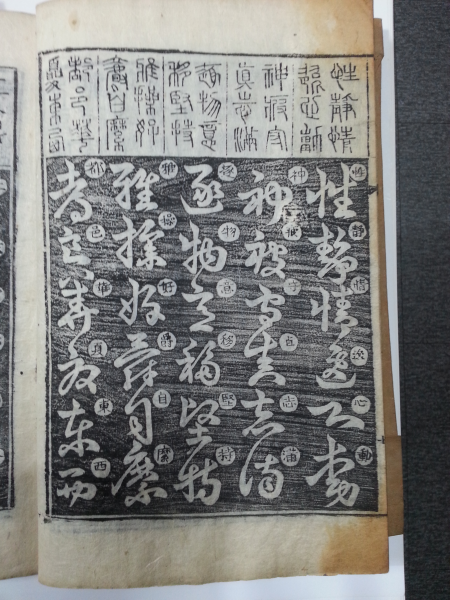 性靜情
逸心動
神疲守
真志滿
逐物意
移堅持
雅操好
爵自縻
都邑華
夏東西
性靜情逸心動
性靜情逸心動
神疲守真志滿
神疲守真志滿
逐物意移堅持
逐物意移堅持
雅操好爵自縻
雅操好爵自縻
都邑華夏東西
都邑華夏東西